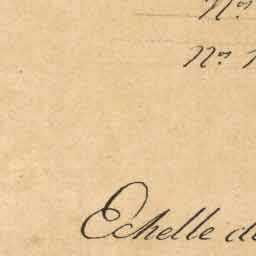 Nos
Nos
Echelle de